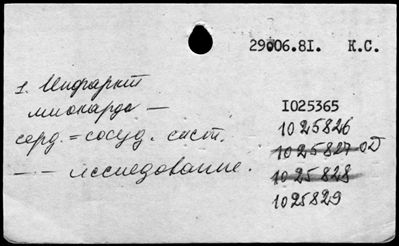 29006.81. К.С.
1. Инфаркт
миокарда —
серд.=сосуд. сист.
— — исследование.
I025365
1025826
1025827 ОД
1025828
1025829